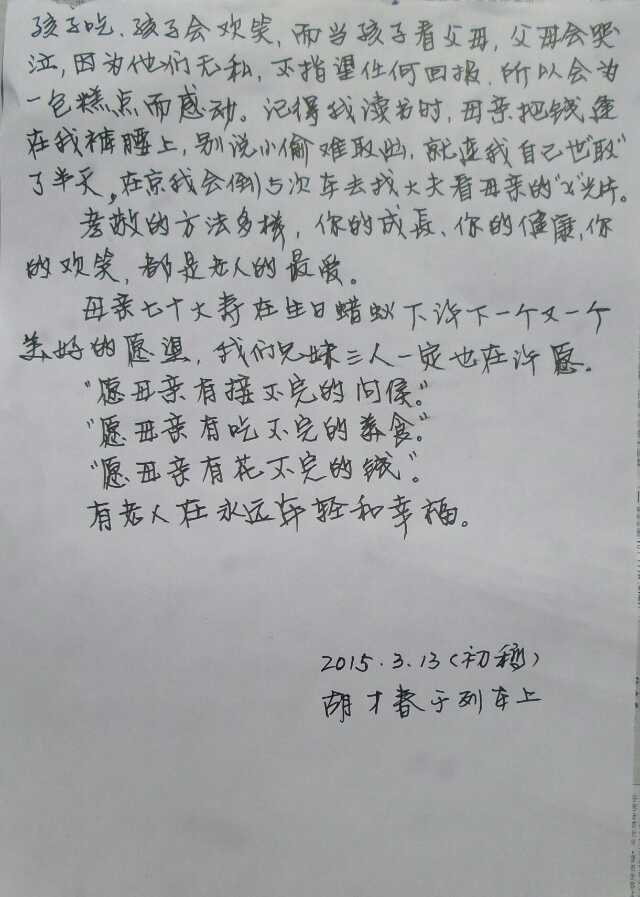 孩子吃、孩子会欢笑,而当孩子看父母,父母会哭
泣,因为他们无私,不指望任何回报.所以会为
一包糕点而感动。记得我读书时,母亲把钱缝
在我裤腰上,别说小偷难取出,就连我自己也"取"
了半天。在京我会倒5次车去找大夫看母亲的"X"光片。
孝敬的方法多样,你的成長、你的健康,你
的欢笑,都是老人的最爱。
母亲七十大寿在生日蜡烛下许下一个又一个
美好的愿望,我们兄妹三人一定也在许愿。
"愿母亲有接不完的问候。"
"愿母亲有吃不完的美食。"
"愿母亲有花不完的钱"。
有老人在永远年轻和幸福。
2015.3.13(初稿)
胡才春于列车上